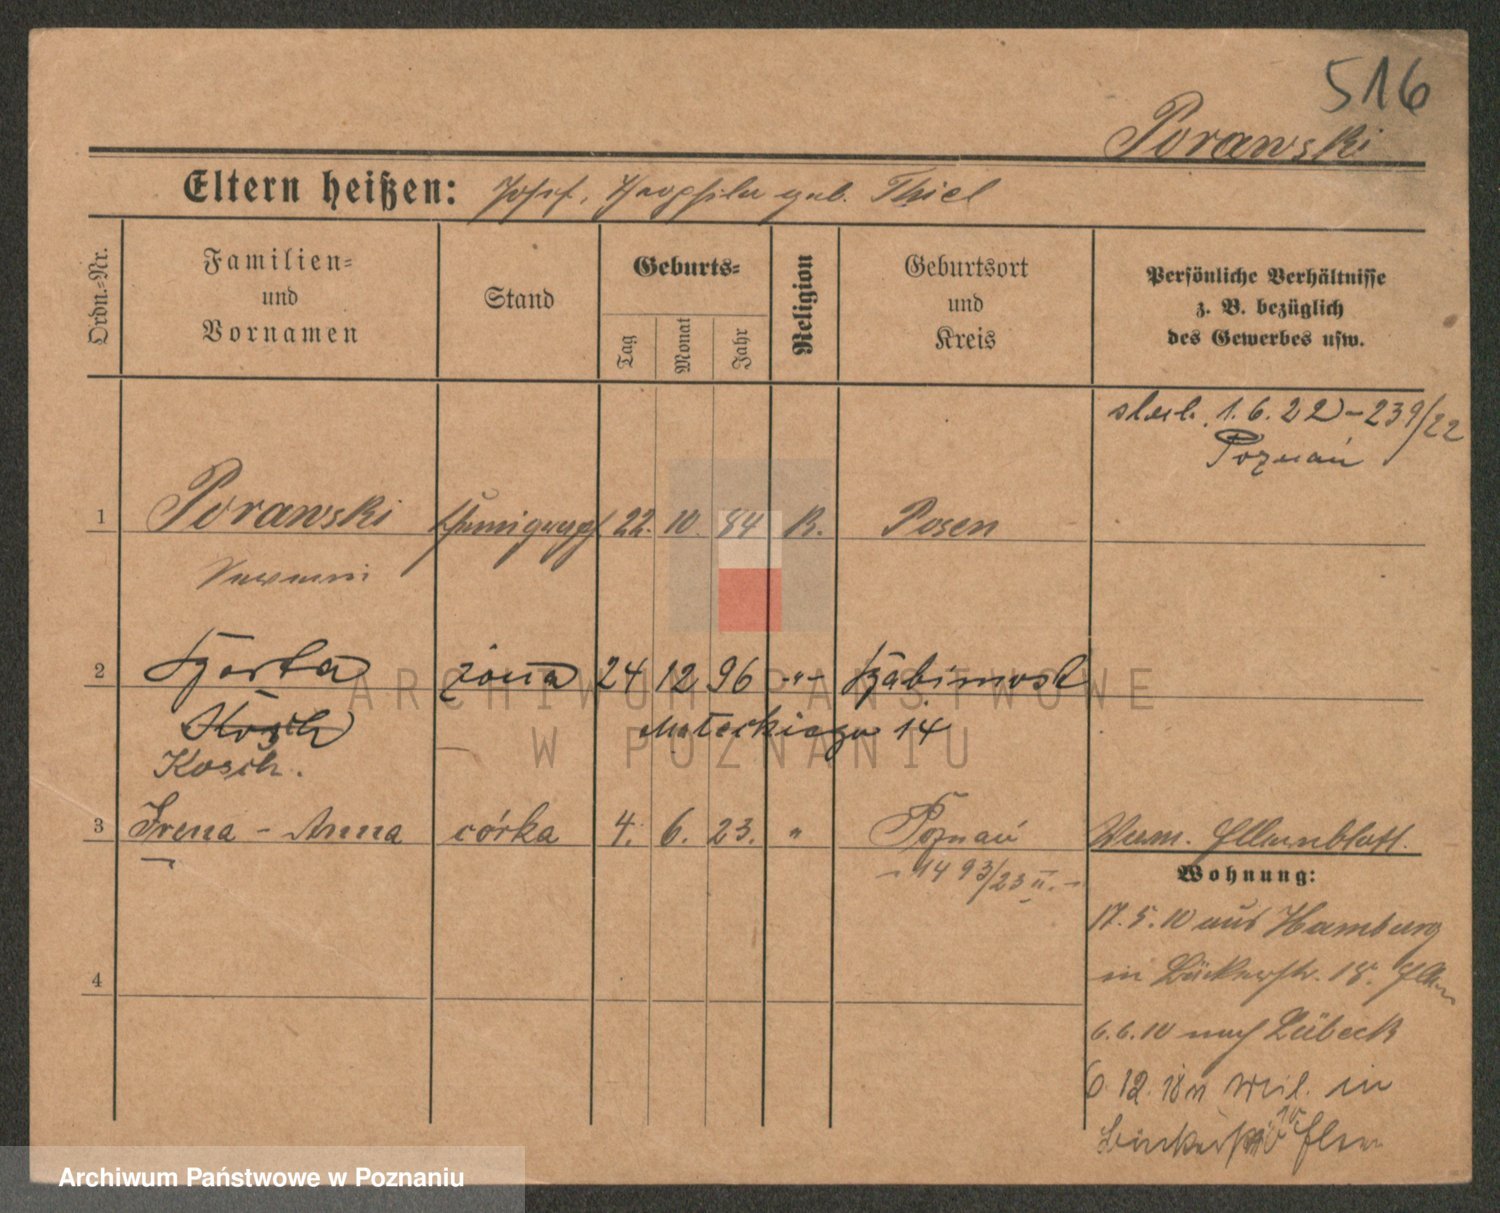 516
Porawski
Eltern heißen: Josef, geb. Thiel
Ordn.-Nr.
Familien-
und
Vornamen
Stand
Geburts-
Tag
Monat
Jahr
Religion
Geburtsort
und
Kreis
Persönliche Verhältnisse
z. B. bezüglich
des Gewerbes usw.
1. 6. 22 - 239/22
Poznań
1 Porawski 22. 10. 84 K. Posen
2 żona 24 12 96 -"- Babimost
Kosch
Mateckiego 14
Kosch.
3 Irena - Anna córka 4. 6. 23. " Poznań
- 1493/23 II. -
Verm. Elternblatt.
Wohnung:
17. 5. 10 aus Hamburg
in 18. Eltern
6. 6. 10 nach Lübeck
4
6. 12. in
ARCHIWUM PAŃSTWOWE
W POZNANIU
Archiwum Państwowe w Poznaniu